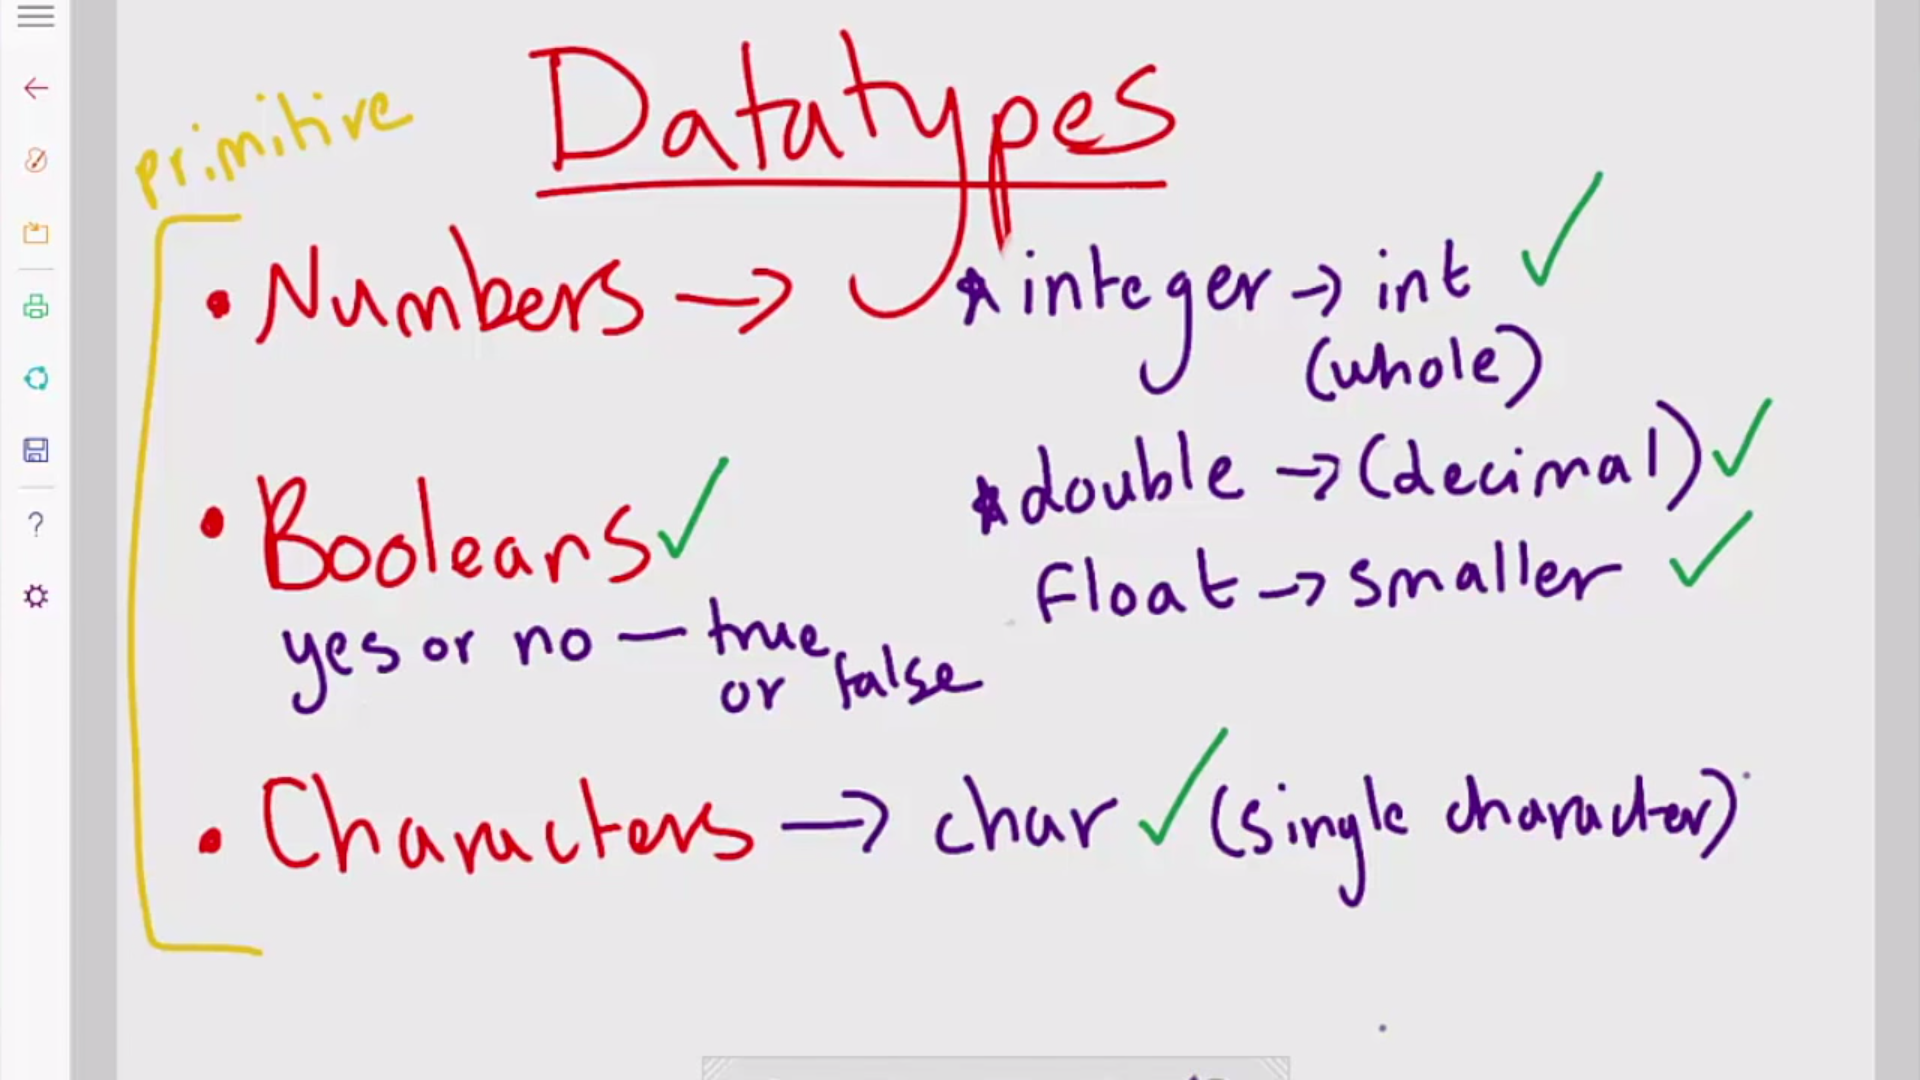 Datatypes
primitive
• Numbers → * integer → int ✓
(whole)
* double → (decimal) ✓
float → smaller ✓
• Booleans ✓
yes or no — true
or false
• Characters → char ✓ (single character)